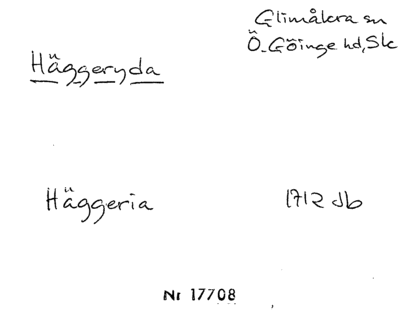 Glimåkra sn
Häggeryda
Ö. Göinge hd, Sk
Häggeria
1712 db
Nr 17708